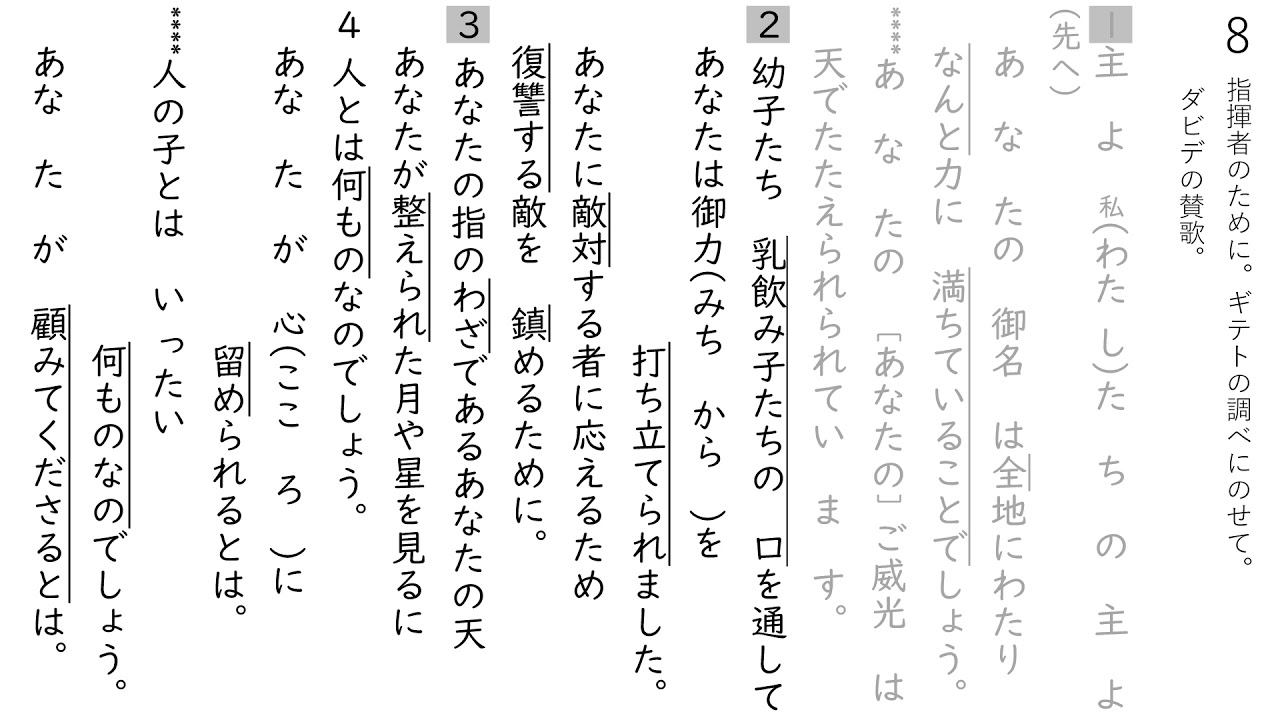 8 指揮者のために。ギテトの調べにのせて。
ダビデの賛歌。
1 主よ 私(わたし)たちの主よ
(先へ)
あなたの 御名 は全地にわたり
なんと力に 満ちていることでしょう。
****あなたの [あなたの]ご威光 は
天でたたえられられてい ま す。
2 幼子たち 乳飲み子たちの 口を通して
あなたは御力(みち から )を
打ち立てられました。
あなたに敵対する者に応えるため
復讐する敵を 鎮めるために。
3 あなたの指のわざであるあなたの天
あなたが整えられた月や星を見るに
4 人とは何ものなのでしょう。
あな た が 心(ここ ろ )に
留められるとは。
****人の子とは いったい
何ものなのでしょう。
あな た が 顧みてくださるとは。